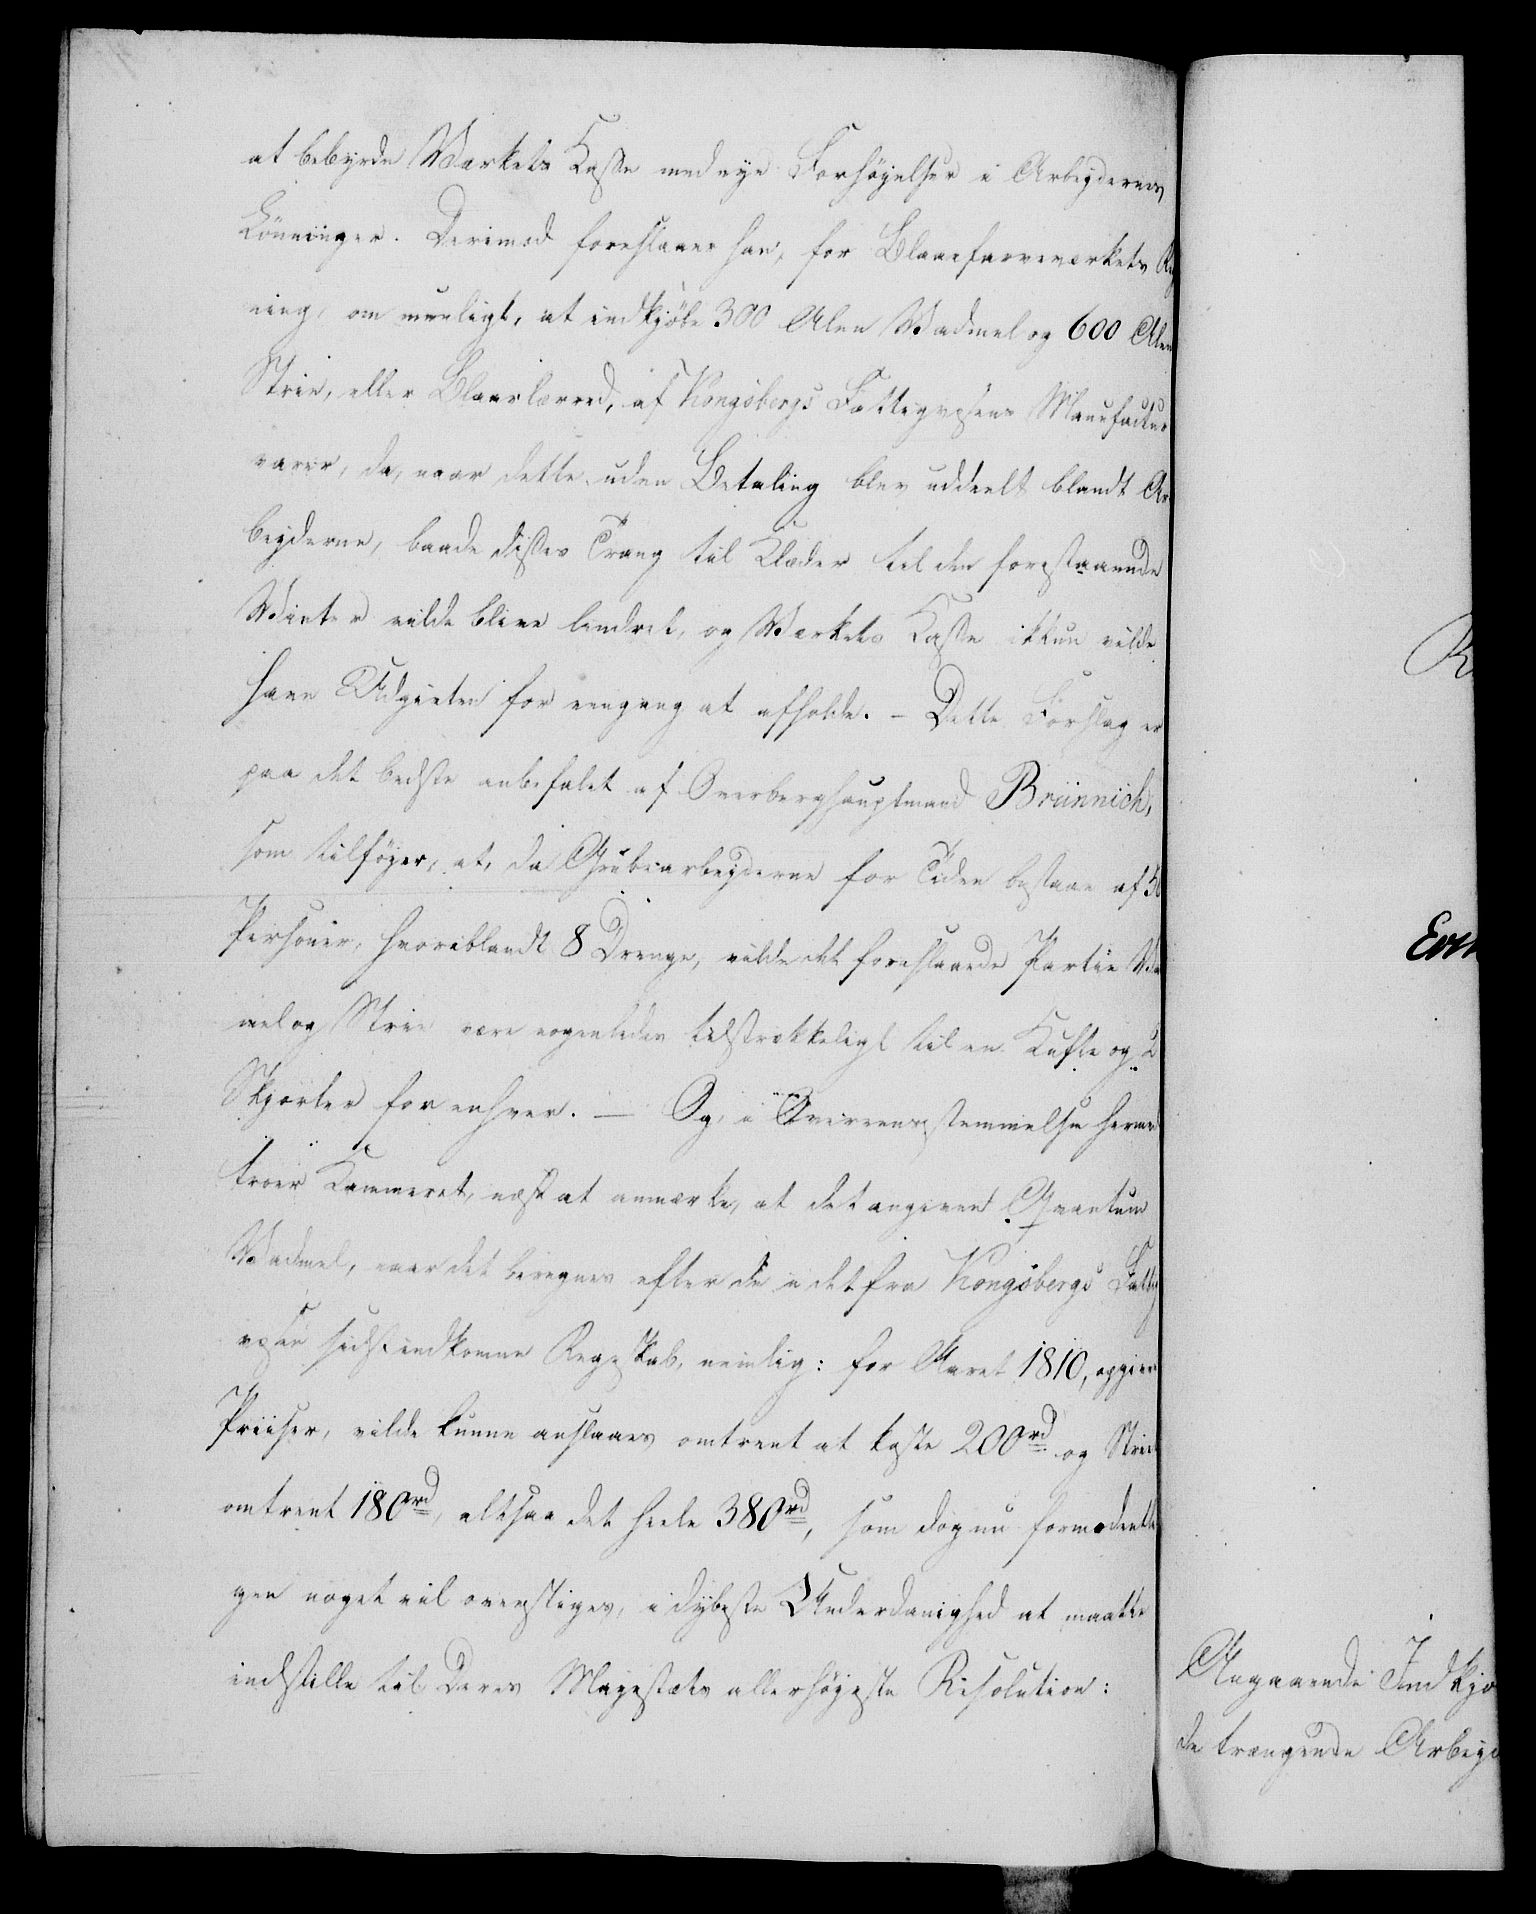 at bebyrde Værkets Kasse med nye Forhøjelser i Arbeydernes
Lønninger. Derimod foreslaaer han, for Blaaefarveværkets Reg
ning, om mueligt, at indkjøbe 300 Alen Vadmel og 600 Alen
Strie, eller Blaarlærred, af Kongsbergs Fattigvæsens Manufactur
varer, da, naar dette uden Betaling blev uddeelt blandt Ar
beyderne, baade disses Trang til Klæder til den forestaaende
Vinter vilde blive lindret, og Værkets Kasse ikkun vilde
have Udgivten for eengang at afholde. – Dette Forslag er
paa det bedste anbefalet af Overberghauptmand Brünnich,
som tilføyer, at, da Grubearbeyderne for Tiden bestaae af 5
Personer, hvoriblandt 8 Drenge, vilde det foreslaaede Partie Va
mel og Strie være nogenledes tilstrækkeligt til en Kufte og 2
Skjorter for enhver. – Og, i Overeensstemmelse herm
troer Kammeret, næst at anmærke, at det angivne Qvantum
Vadmel, naar det beregnes efter de i det fra Kongsbergs Fattig
væsen sidst indkomne Regnskab, nemlig: for Aaret 1810, opgivn
Priiser, vilde kunne anslaaes omtrent at koste 200 rd og Strie
omtrent 180 rd, altsaa det heele 380 rd, som dog nu formodentli
gen noget vil overstiges, i dybeste Underdanighed at maatte
indstille til Deres Majestæts allerhøjeste Resolution:
Angaaende Indkjø
de trængende Arbeyd